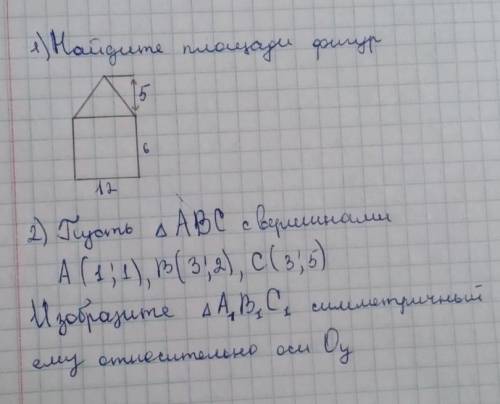 1) Найдите площади фигур
5
6
12
2) Пусть △ABC с вершинами
A(1;1), B(3;2), C(3;5)
Изобразите △A₁B₁C₁ симметричный
ему относительно оси Oy